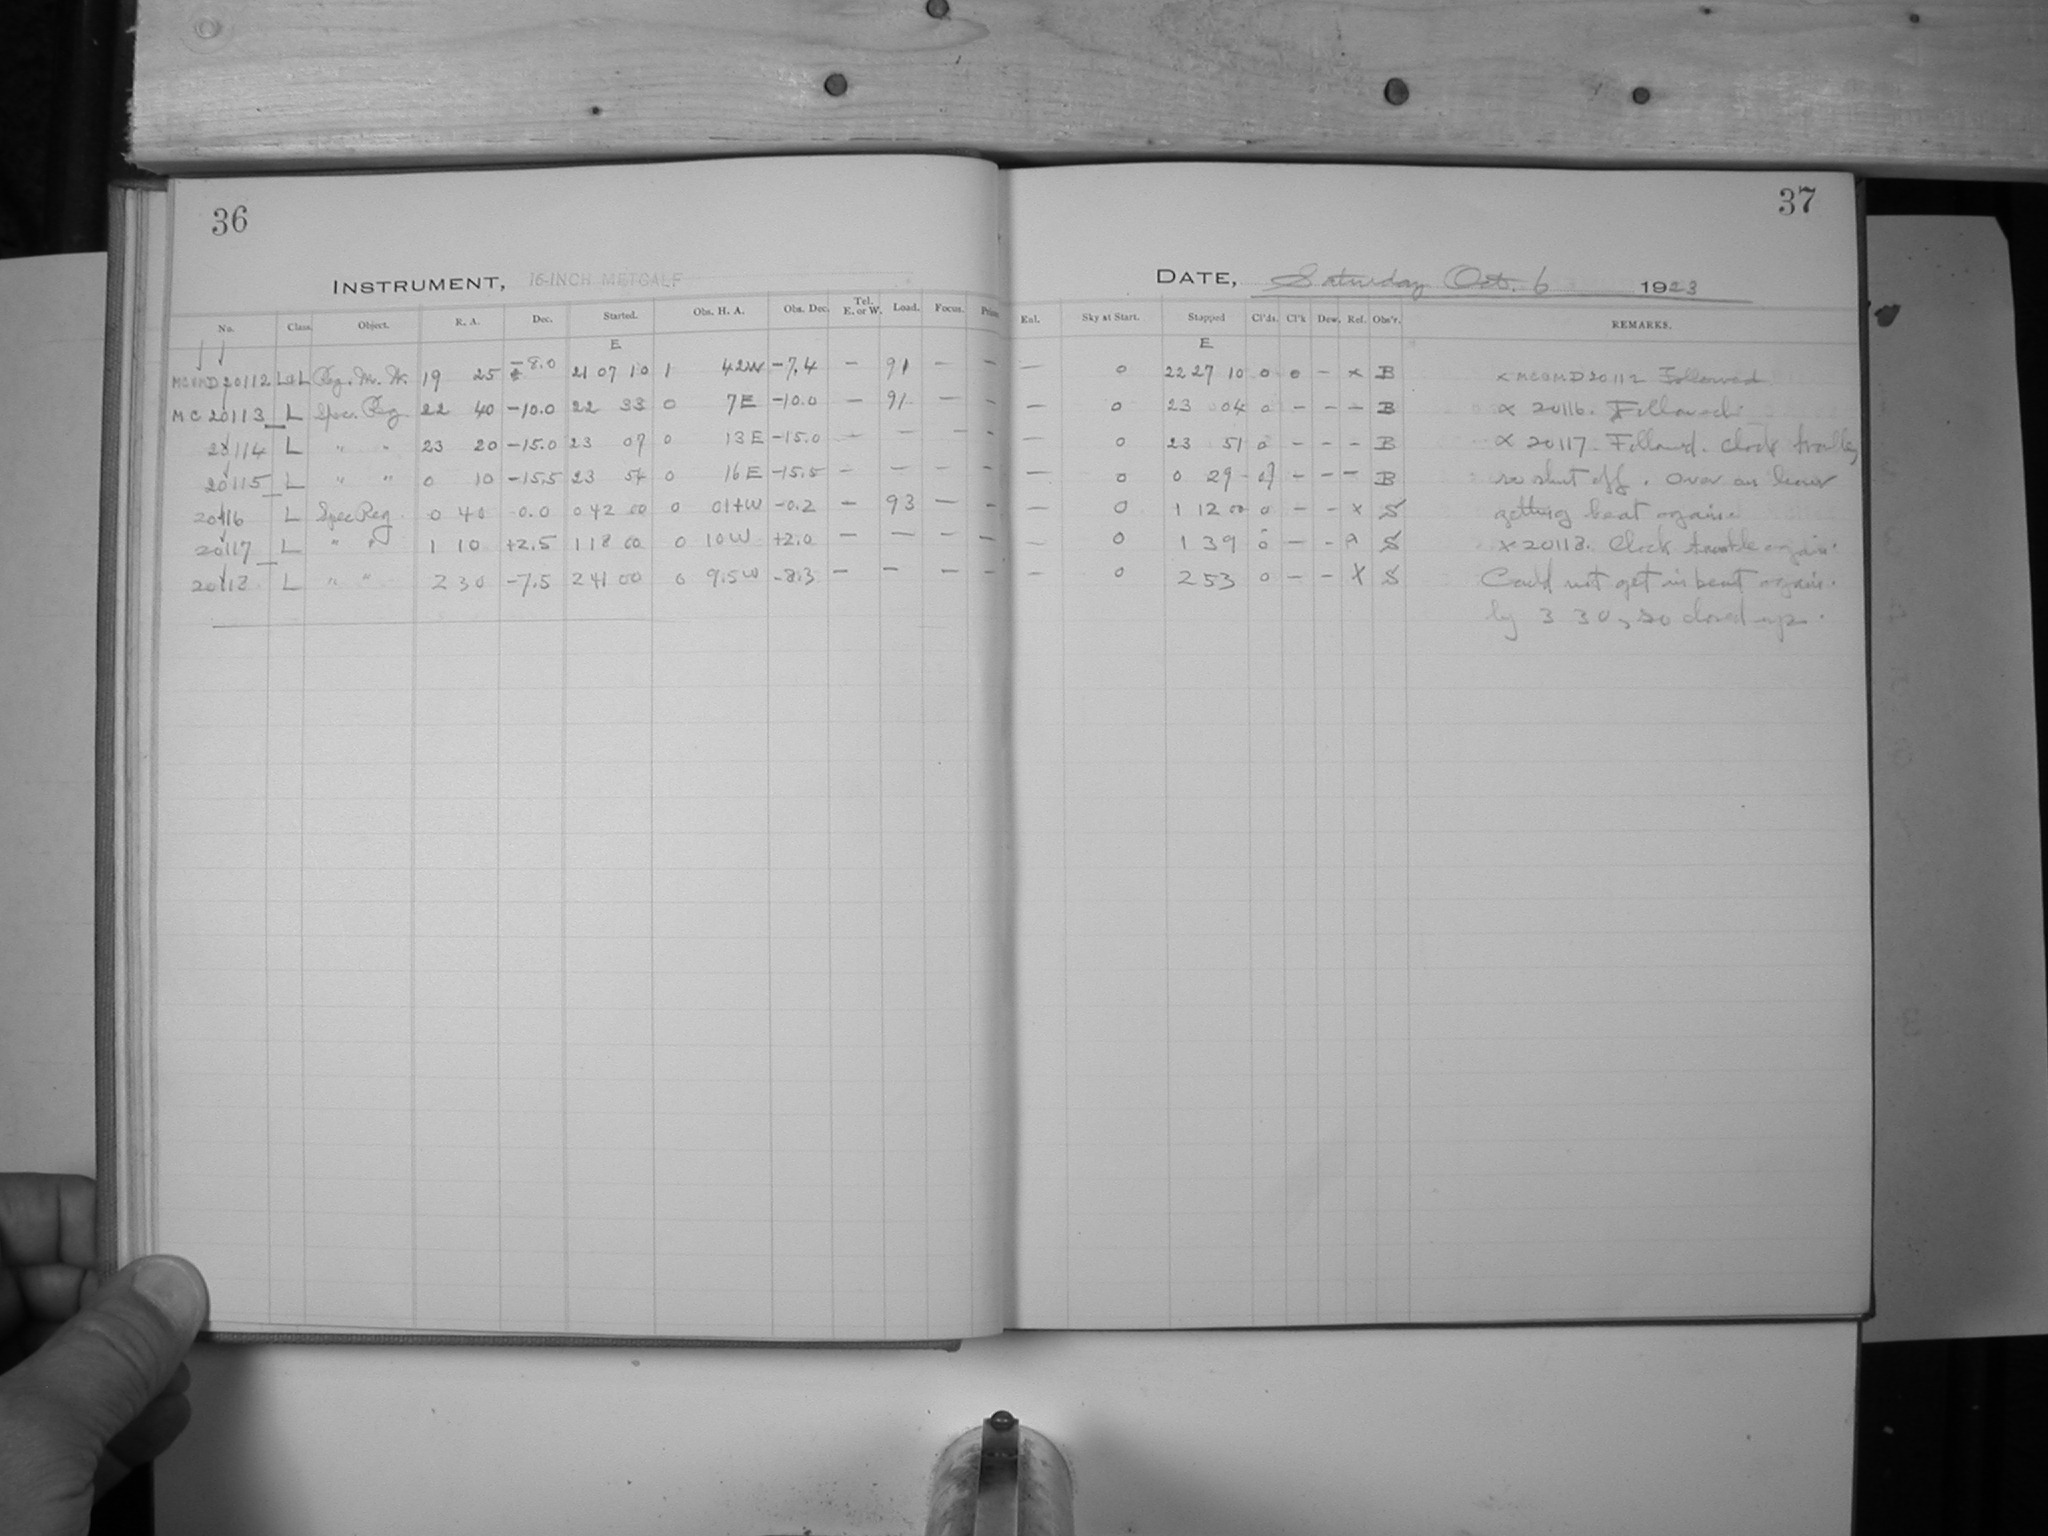 36
37
INSTRUMENT, 16-INCH METCALF
DATE, Saturday Oct. 6 1923
No. Class. Object. R. A. Dec. Started. Obs. H. A. Obs. Dec. Tel. E. or W. Load. Focus. Prism Enl. Sky at Start. Stopped Cl'ds. Cl'k Dew. Ref. Obs'r. REMARKS.
E E
MC&MD 20112 L&L Reg. M. W. 19 25 -8.0 21 07 10 1 42W -7.4 - 91 - - - 0 22 27 10 0 0 - x B x MC&MD 20112 Followed
MC 20113 L Spec. Reg 22 40 -10.0 22 33 0 7E -10.0 - 91 - - - 0 23 04 0 - - - B x 20116. Followed.
20114 L " " 23 20 -15.0 23 07 0 13E -15.0 - - - - - 0 23 51 0 - - - B x 20117. Followed. Clock trouble,
20115 L " " 0 10 -15.5 23 54 0 16E -15.5 - - - - - 0 0 29 - - - B so shut off. Over an hour
20116 L Spec Reg. 0 40 0.0 0 42 00 0 01+W -0.2 - 93 - - - 0 1 12 00 0 - - x S getting beat again.
20117 L " " 1 10 +2.5 1 18 00 0 10W +2.0 - - - - - 0 1 39 0 - - S x 20118. Clock trouble again.
20118 L " " 2 30 -7.5 2 41 00 0 9.5W -8.3 - - - - - 0 2 53 0 - - x S Could not get in beat again
by 3 30, so closed up.